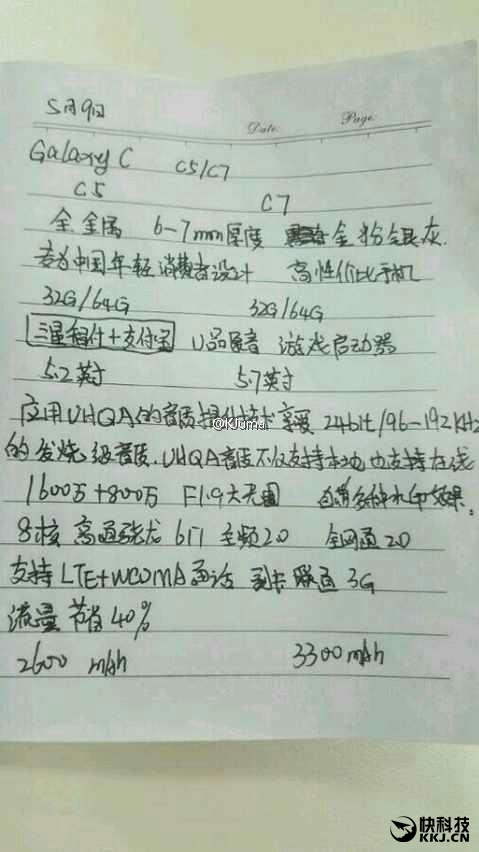 5月9日
Date. Page.
Galaxy C C5/C7
C5 C7
全金属 6-7mm厚度 金粉银灰.
专为中国年轻消费者设计 高性价比手机
32G/64G 32G/64G
三星智付+支付宝 U品音 游戏启动器
5.2英寸 5.7英寸
@KJuma
应用UHQA的音质提升技术享受24bit/96-192KHz
的发烧级音质.UHQA音质不仅支持本地也支持在线
1600万+800万 F1.9大光圈 多种水印效果.
8核 高通骁龙 617 主频2.0 全网通2.0
支持LTE+WCDMA通话 副卡联通3G
流量节省40%
2600 mAh 3300mAh
快科技
KKJ.CN